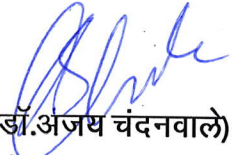 डॉ.अजय चंदनवाले)